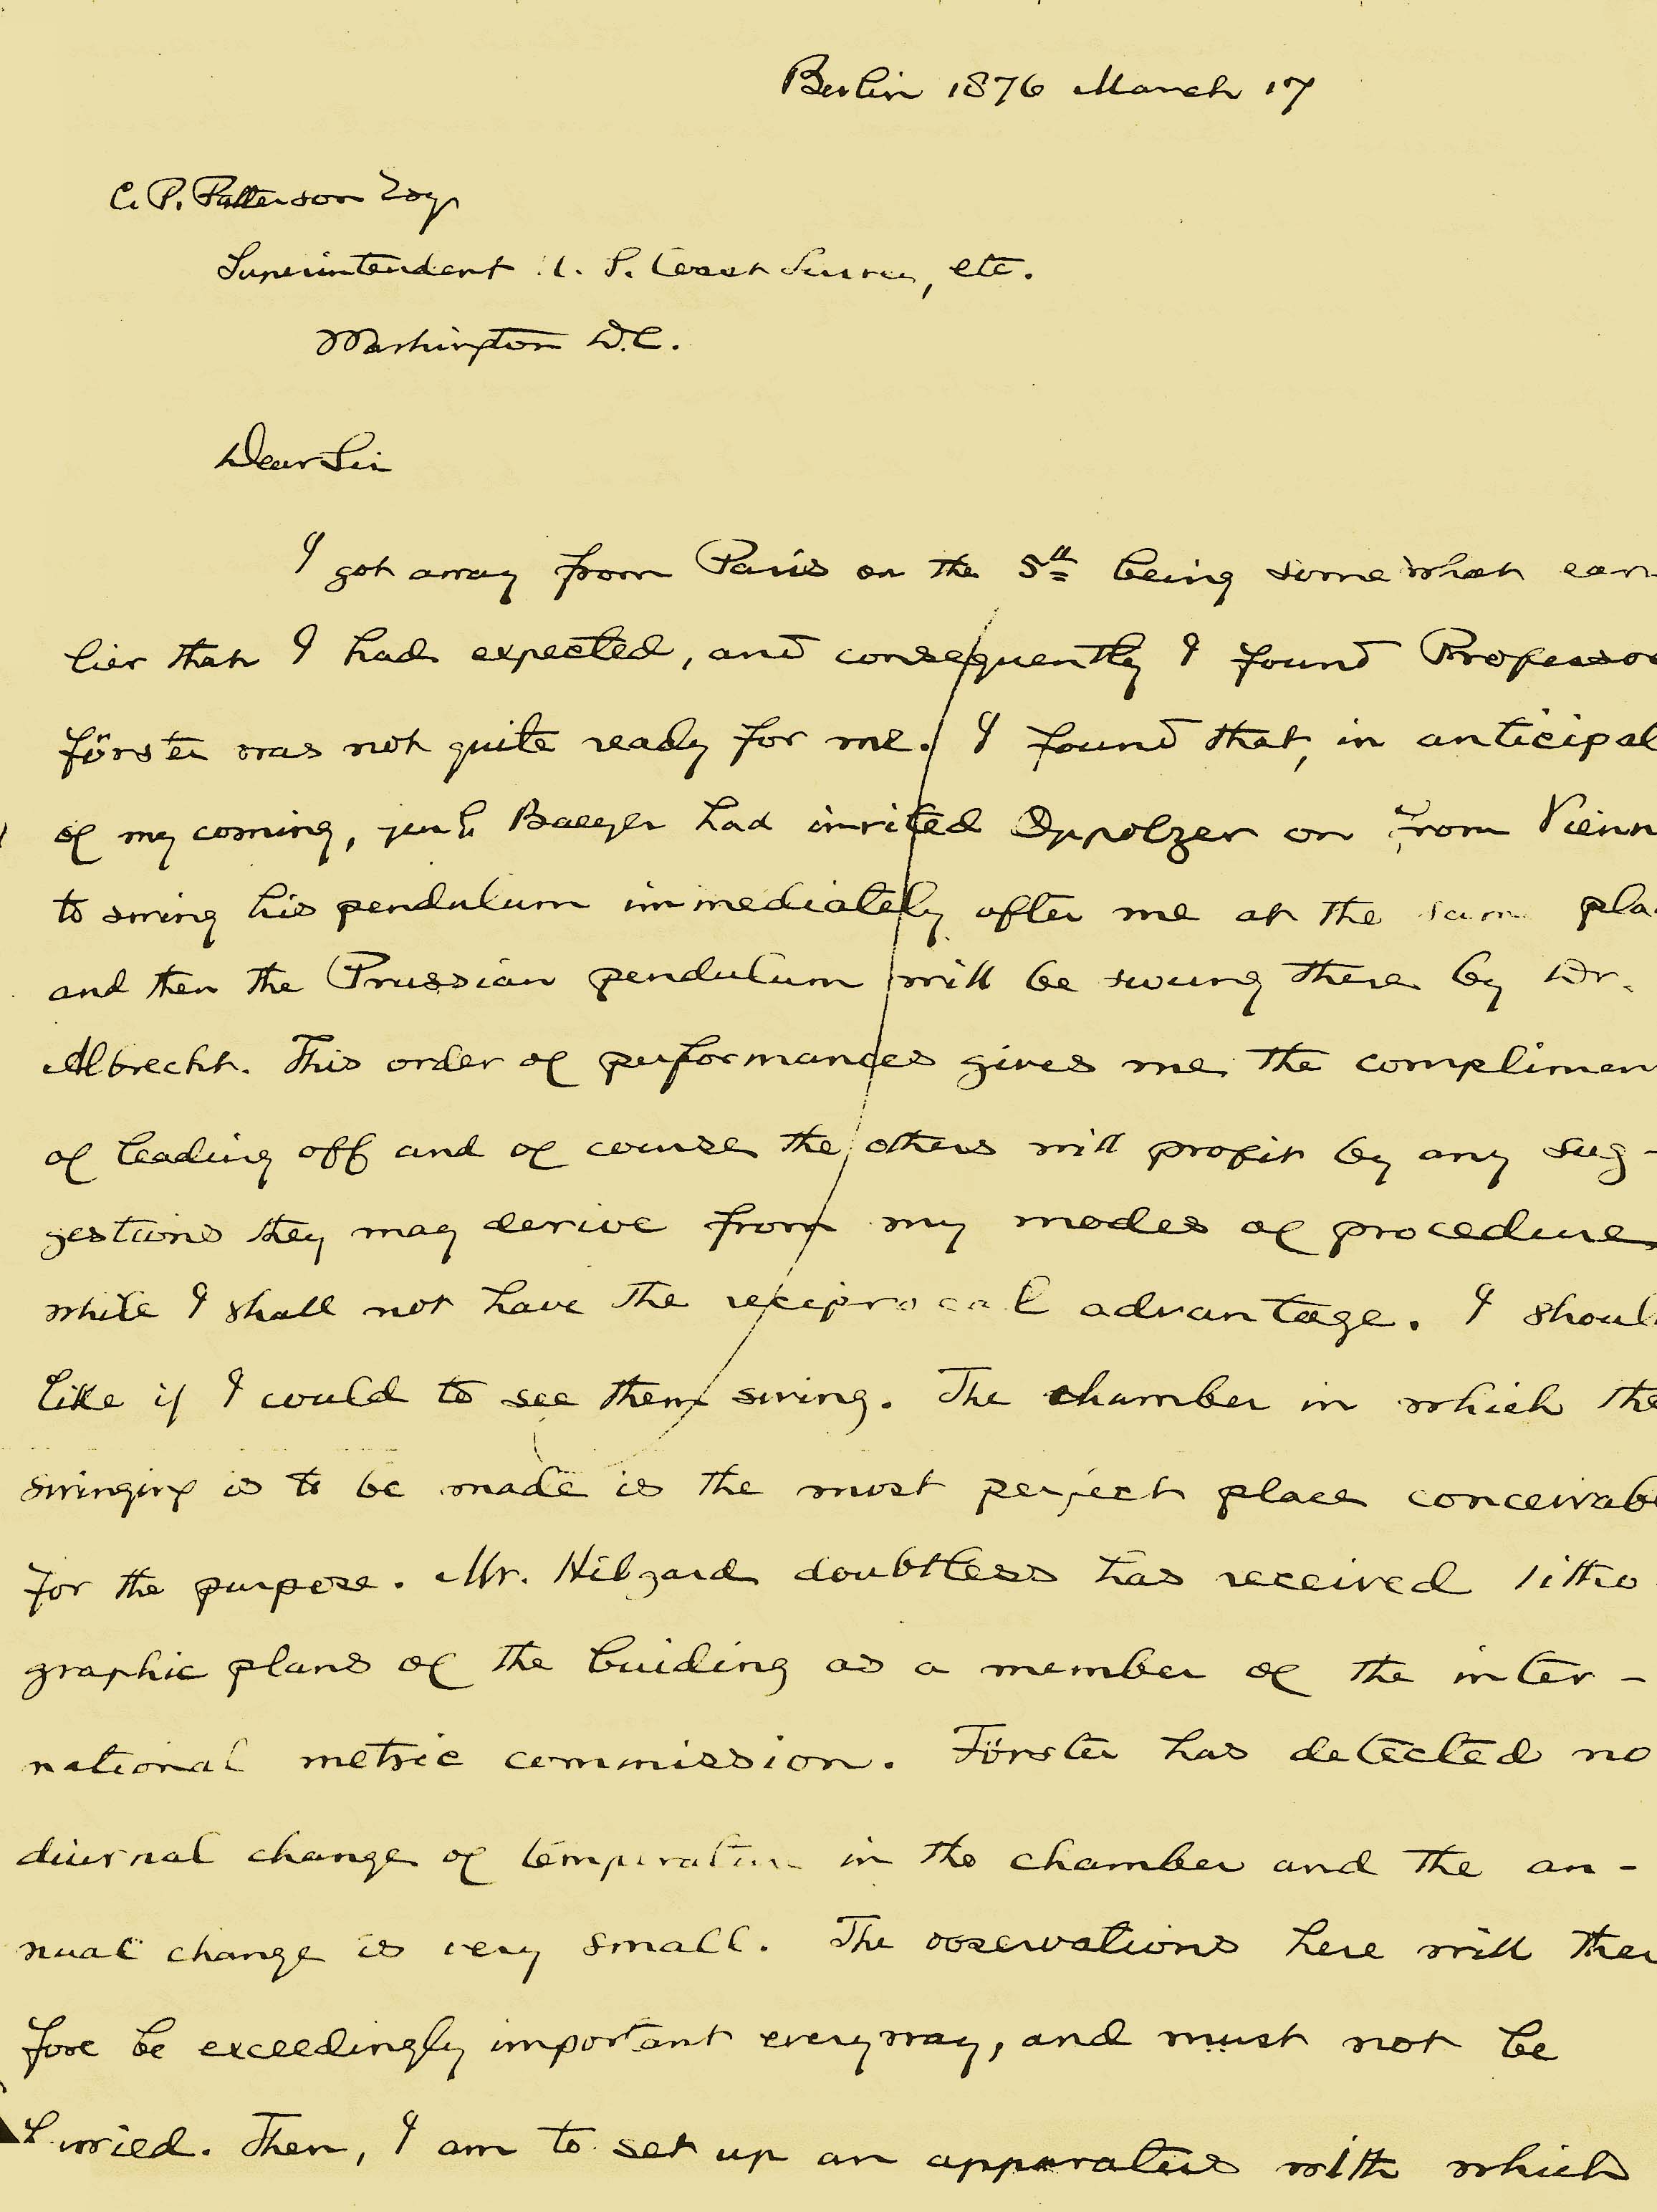 Berlin 1876 March 17
C. P. Patterson Esq.
Superintendent U. S. Coast Survey, etc.
Washington D.C.
Dear Sir
I got away from Paris on the 5th being somewhat ear
lier than I had expected, and consequently I found Professor
Förster was not quite ready for me. I found that, in anticipat
of my coming, Baeyer had invited Oppolzer on from Vienn
to swing his pendulum immediately after me at the same pla
and then the Prussian pendulum will be swung there by Dr.
Albrecht. This order of performances gives me the complimen
of leading off and of course the others will profit by any sug-
gestions they may derive from my modes of procedure
while I shall not have the reciprocal advantage. I shoul
like if I could to see them swing. The chamber in which the
swinging is to be made is the most perfect place conceivab
for the purpose. Mr. Hilgard doubtless has received litho
graphic plans of the buiding as a member of the inter-
national metric commission. Förster has detected no
diurnal change of temperature in the chamber and the an-
nual change is very small. The observations here will ther
fore be exceedingly important everyway, and must not be
hurried. Then, I am to set up an apparatus with which